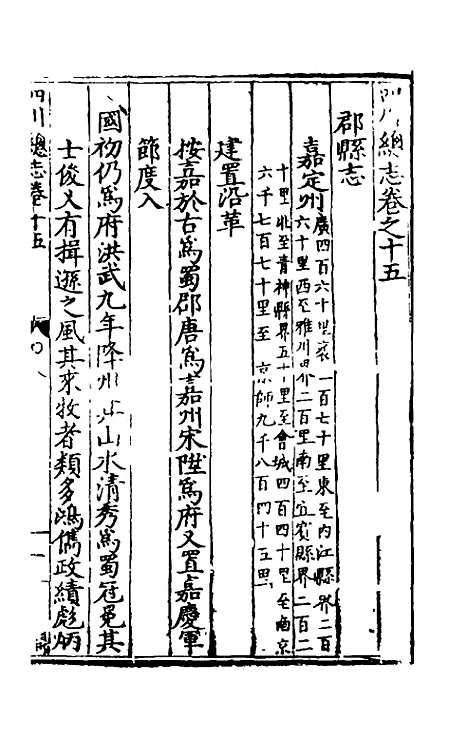 四川總志卷之十五
郡縣志
嘉定州廣四百六十里袤一百七十里東至内江縣界二百
六十里西至雅州界二百里南至宜賓縣界二百二
十里北至青神縣界五十里至會城四百四十里至南京
六千七百七十里至 京師九千八百四十五里
建置沿革
按嘉於古爲蜀郡唐爲嘉州宋陞爲府又置嘉慶軍
節度入
國初仍爲府洪武九年降州 山水清秀爲蜀冠冕其
士俊乂有揖遜之風其來牧者類多鴻儁政績彪炳
四川總志卷十五